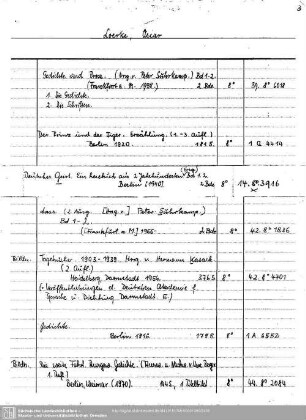 3
Loerke, Oscar
Gedichte und Prosa. (Hrsg. v. Peter Suhrkamp.) Bd 1-2.
(Frankfurt a. M. 1958). 2 Bde 8° 39. 8°
1. Die Gedichte.
2. Die Schriften.
Der Prinz und der Tiger. Erzählung. (1.-3. Aufl.)
Berlin 1920. 181 S. 8° 1 A 4414
Deutscher Geist. Ein Lesebuch aus 2 Jahrhunderten (Hrsg.) Bd 1.2
Berlin (1940) 2 Bde 8° 14. 8° 3916
Peter Suhrkamp)
Bd 1-2.
(Frankfurt a. M.) 1966. 2 Bde 8° 42. 8° 1826
Bibln. Tagebücher. 1903-1939. Hrsg. v. Hermann Kasack.
(2. Aufl.)
Heidelberg Darmstadt 1956. 376 S. 8° 42. 8° 4701
(= Veröffentlichungen d. Deutschen Akademie f.
Sprache u. Dichtung Darmstadt. 5.)
Gedichte.
Berlin 1916. 179 S. 8° 1 A 6552
Bibln.
1. Aufl.
Berlin, Weimar (1970). 8° 44. 8° 2084